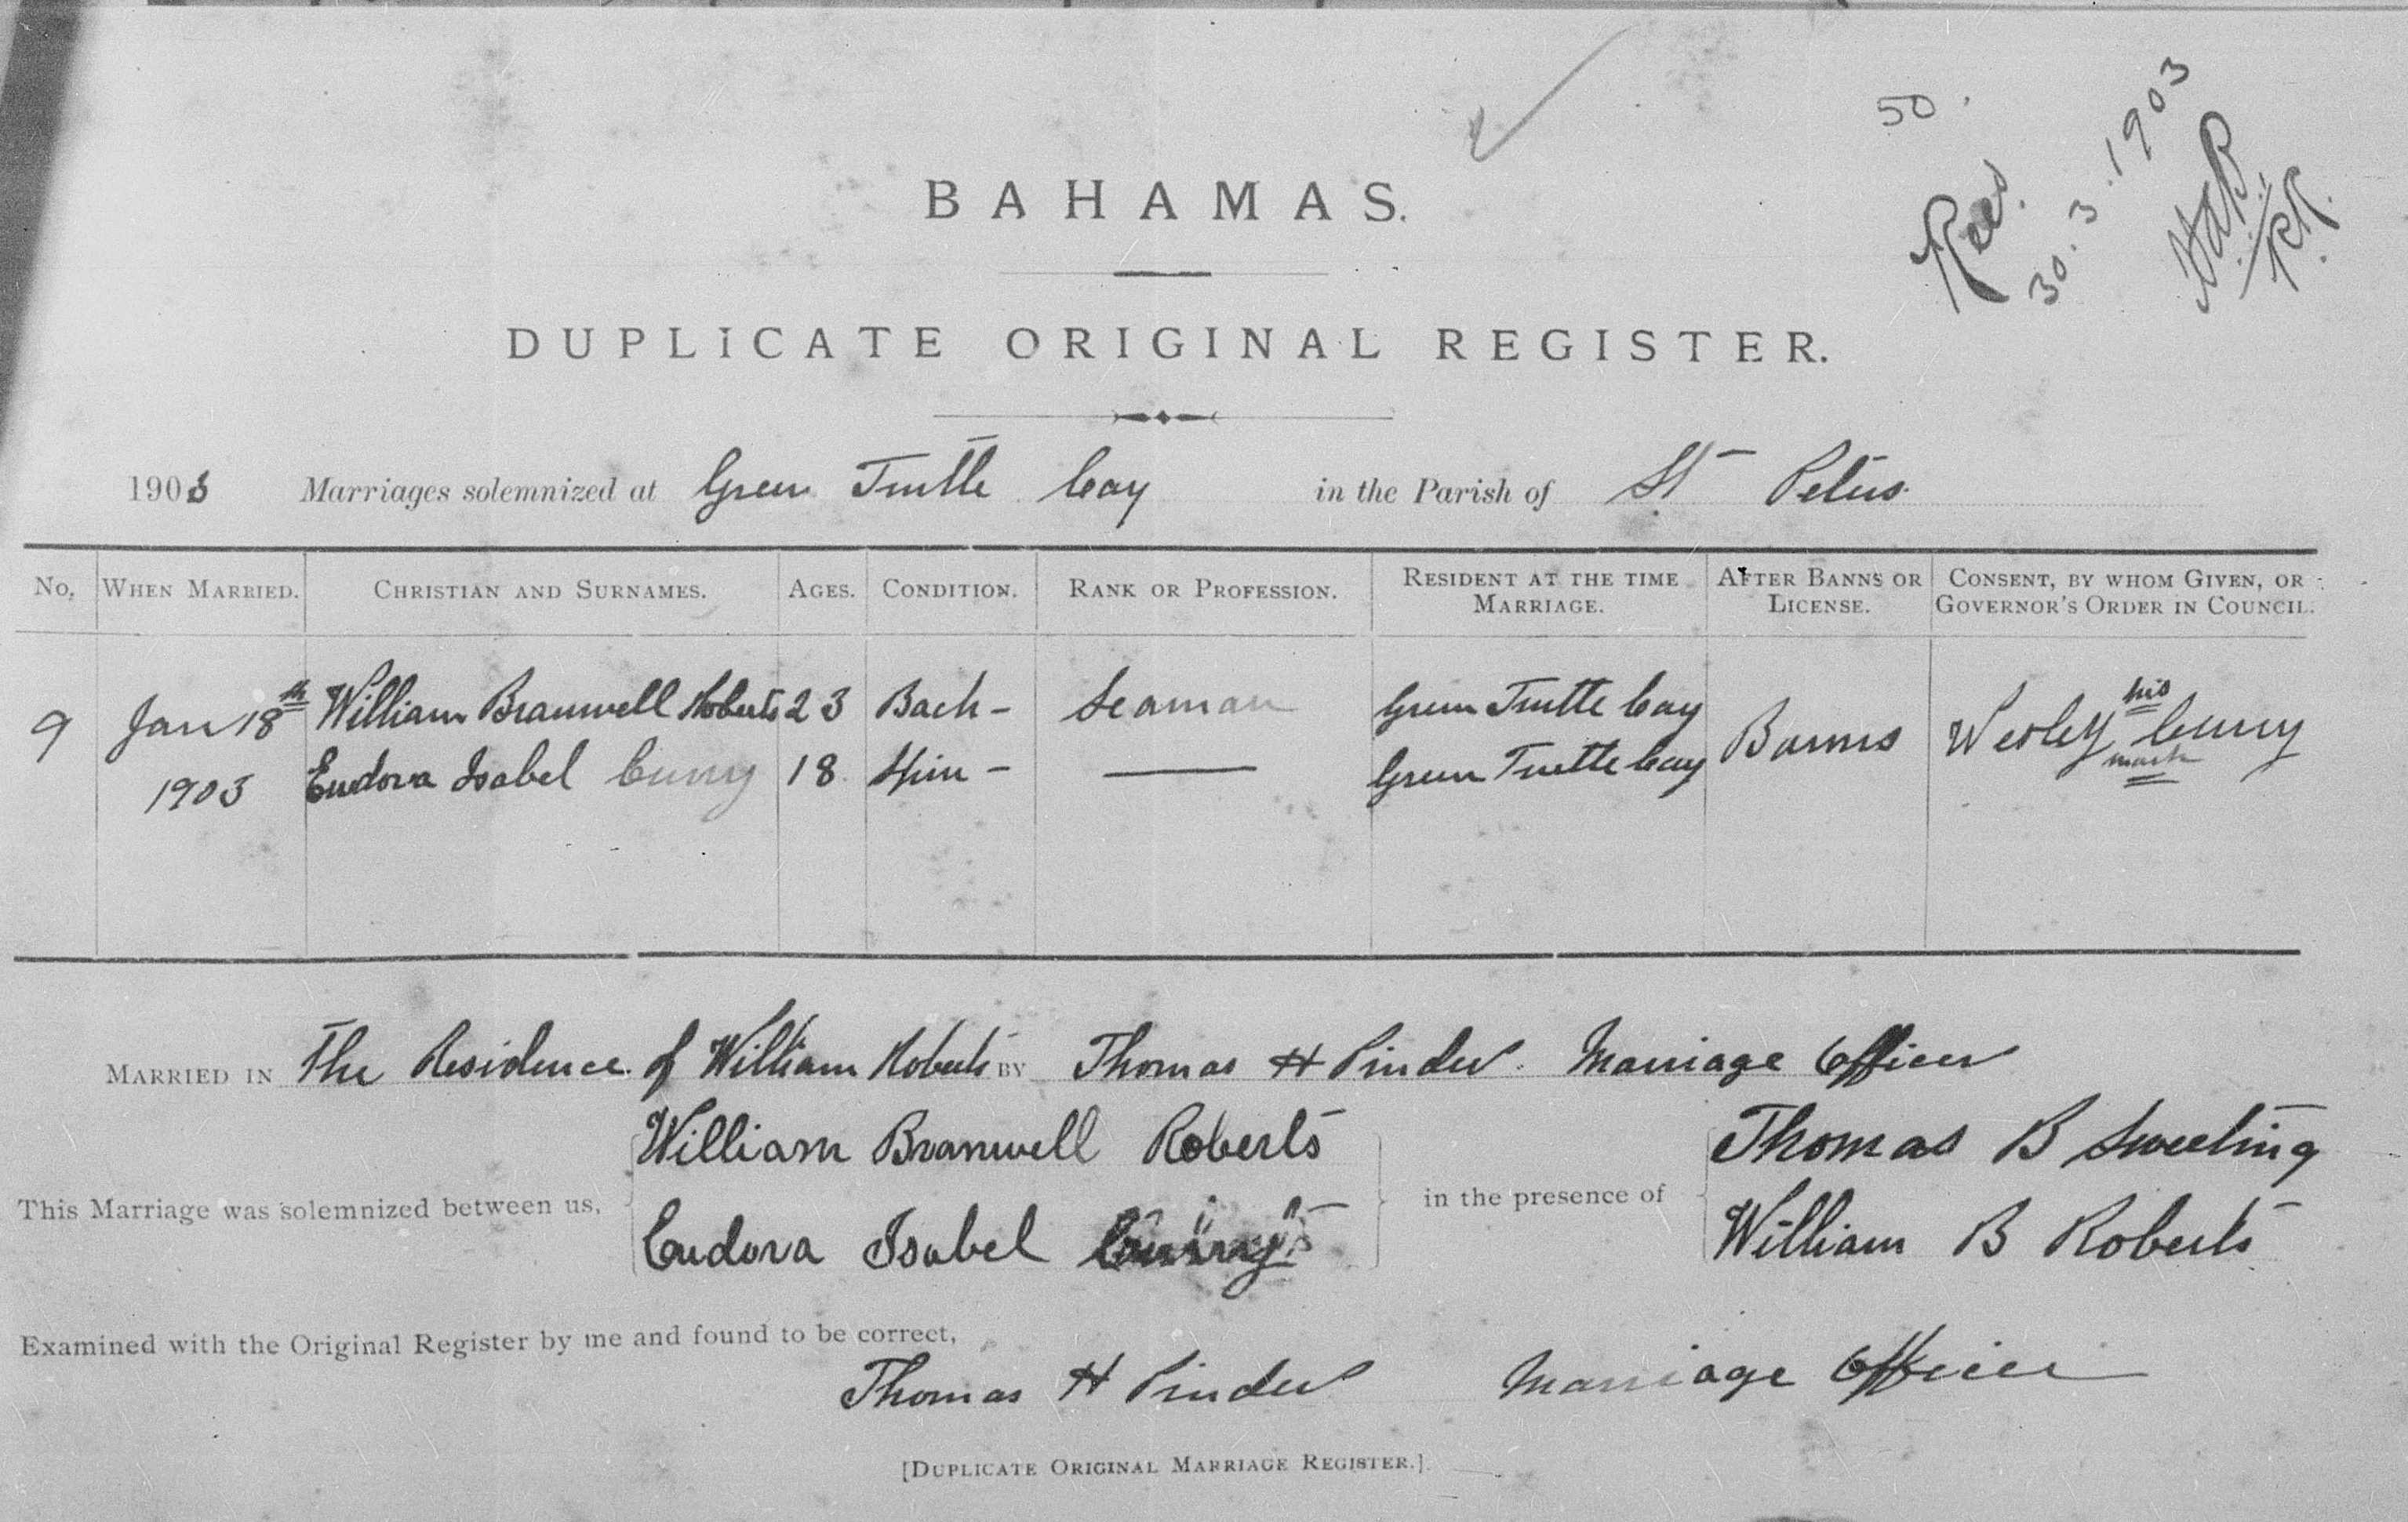 50.
Rec.
30.3.1903
BAHAMAS.
DUPLICATE ORIGINAL REGISTER.
1903 Marriages solemnized at Green Turtle Cay in the Parish of St Peters.
No. WHEN MARRIED. CHRISTIAN AND SURNAMES. AGES. CONDITION. RANK OR PROFESSION. RESIDENT AT THE TIME MARRIAGE. AFTER BANNS OR LICENSE. CONSENT, BY WHOM GIVEN, OR GOVERNOR'S ORDER IN COUNCIL.
9 Jan 18th William Bramwell Roberts 23 Bach- Seaman Green Turtle Cay Banns Wesley his mark Curry
1903 Eudora Isabel Curry 18 Spin- Green Turtle Cay
MARRIED IN The Residence of William Roberts BY Thomas H Pinder Marriage Officer
This Marriage was solemnized between us, William Bramwell Roberts in the presence of Thomas B Sweeting
Eudora Isabel Curry William B Roberts
Examined with the Original Register by me and found to be correct,
Thomas H Pinder Marriage Officer
[DUPLICATE ORIGINAL MARRIAGE REGISTER.]